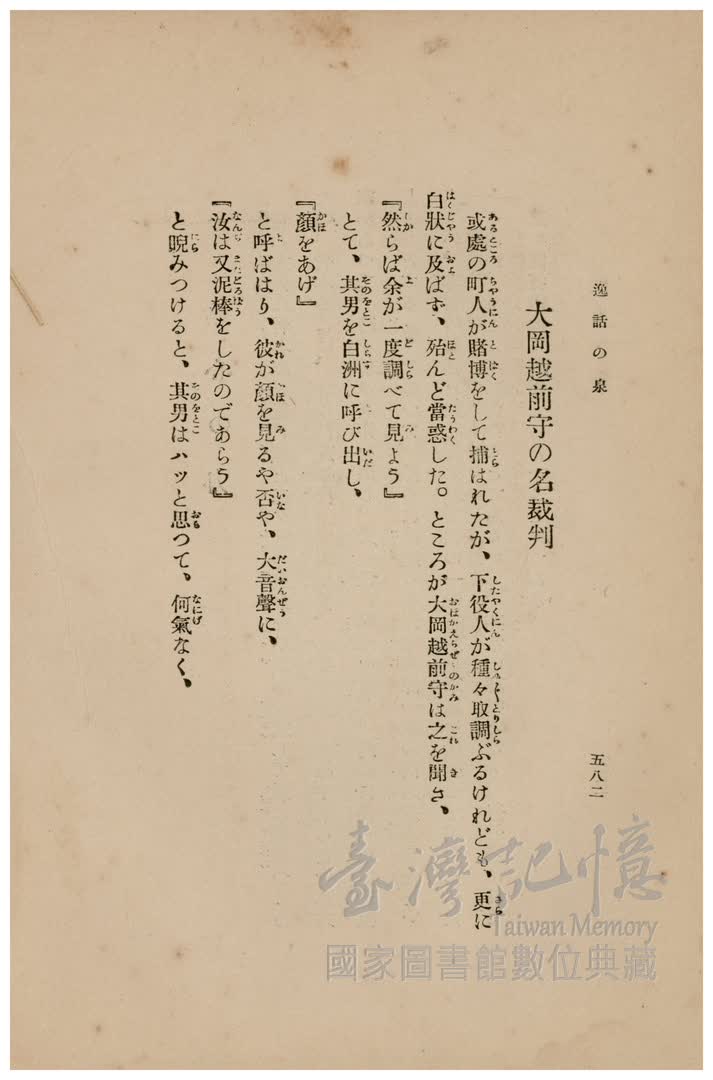 逸話の泉
五八二
大岡越前守の名裁判
或處の町人が賭博をして捕はれたが、下役人が種々取調ぶるけれども、更に
白狀に及ばず、殆んど當惑した。ところが大岡越前守は之を聞き、
『然らば余が一度調べて見よう』
とて、其男を白洲に呼び出し、
『顏をあげ』
と呼ばはり、彼が顏を見るや否や、大音聲に、
『汝は又泥棒をしたのであらう』
と睨みつけると、其男はハッと思つて、何氣なく、
臺灣記憶
Taiwan Memory
國家圖書館數位典藏